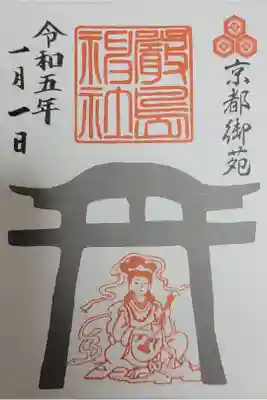 京都御苑
嚴島神社
令和五年
一月一日